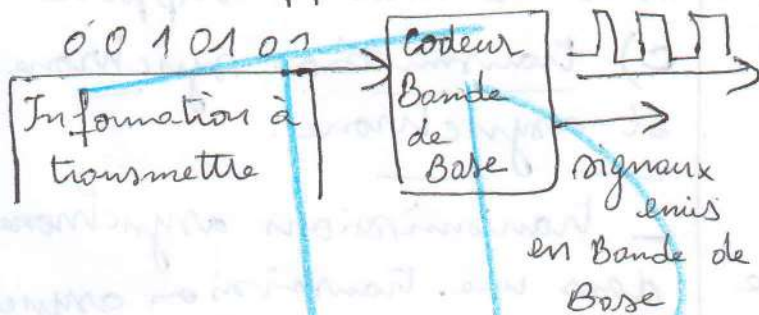 0 0 1 0 1 0 1
Information à
transmettre
Codeur
Bande
de
Base
signaux
emis
en Bande de
Base